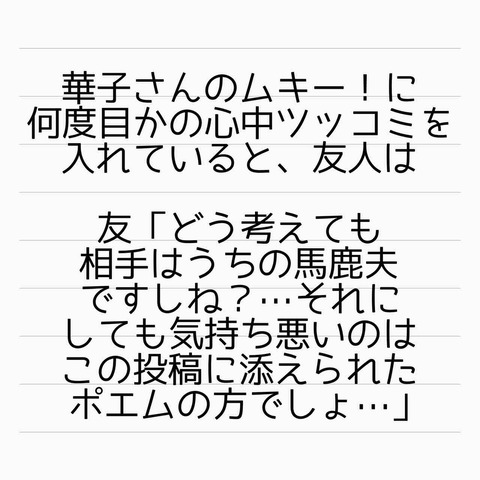 華子さんのムキー！に
何度目かの心中ツッコミを
入れていると、友人は
友「どう考えても
相手はうちの馬鹿夫
ですしね？…それに
しても気持ち悪いのは
この投稿に添えられた
ポエムの方でしょ…」